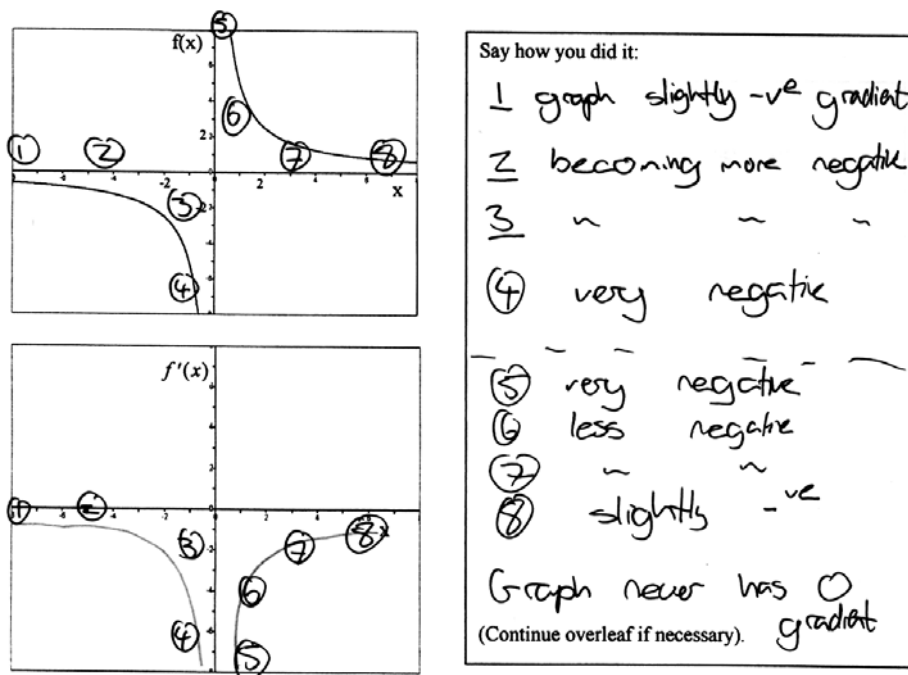 f(x)
5
6
1 2
7 8
x
3
4
-6 -4 -2 2 4 6 8
f'(x)
1 2
x
3
7 8
6
4
5
Say how you did it:
1 graph slightly -ve gradient
2 becoming more negative
3 ~ ~ ~
4 very negative
5 very negative
6 less negative
7 ~ ~
8 slightly -ve
Graph never has 0
gradient
(Continue overleaf if necessary).